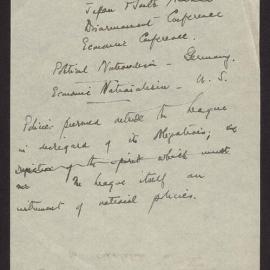 Japan & South
Disarmament Conference
Economic Conference.
Political Nationalism - Germany.
Economic Nationalism - U.S.
Policies pursued outside the League
in disregard of its obligations;
of the spirit which must
The League itself an
instrument of national policies.